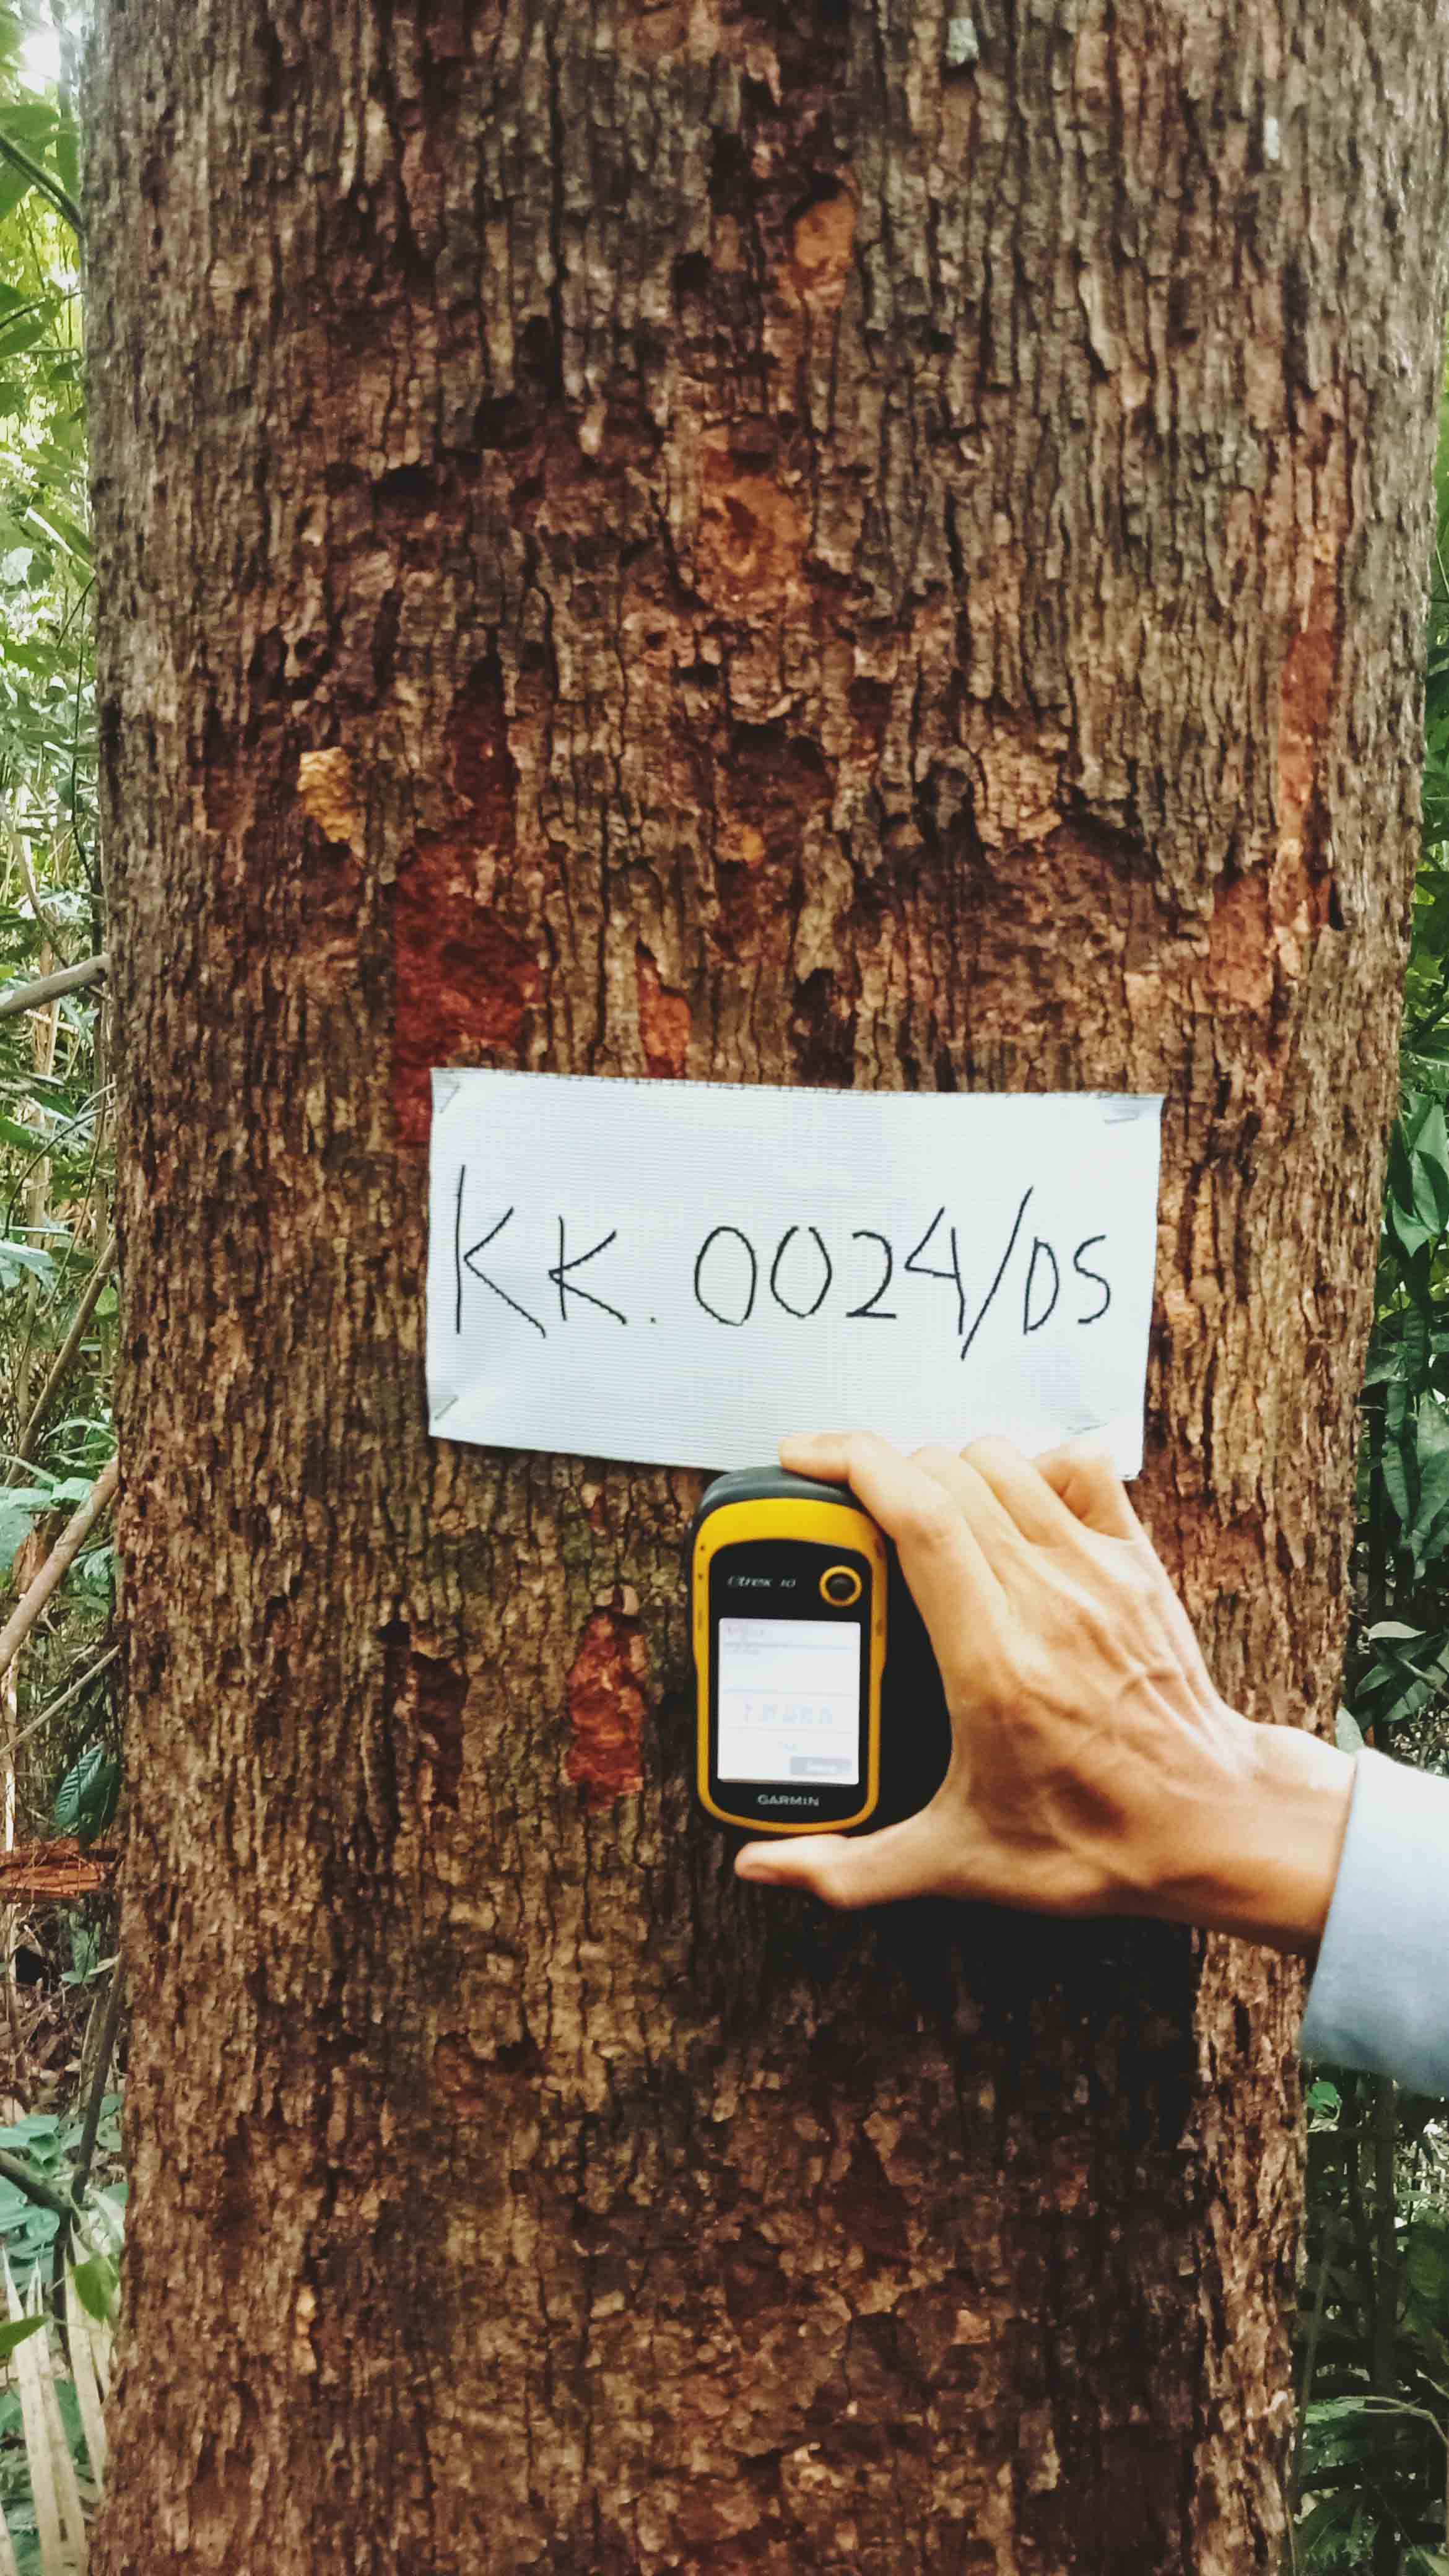 KK. 0024/DS
etrex 10
GARMIN